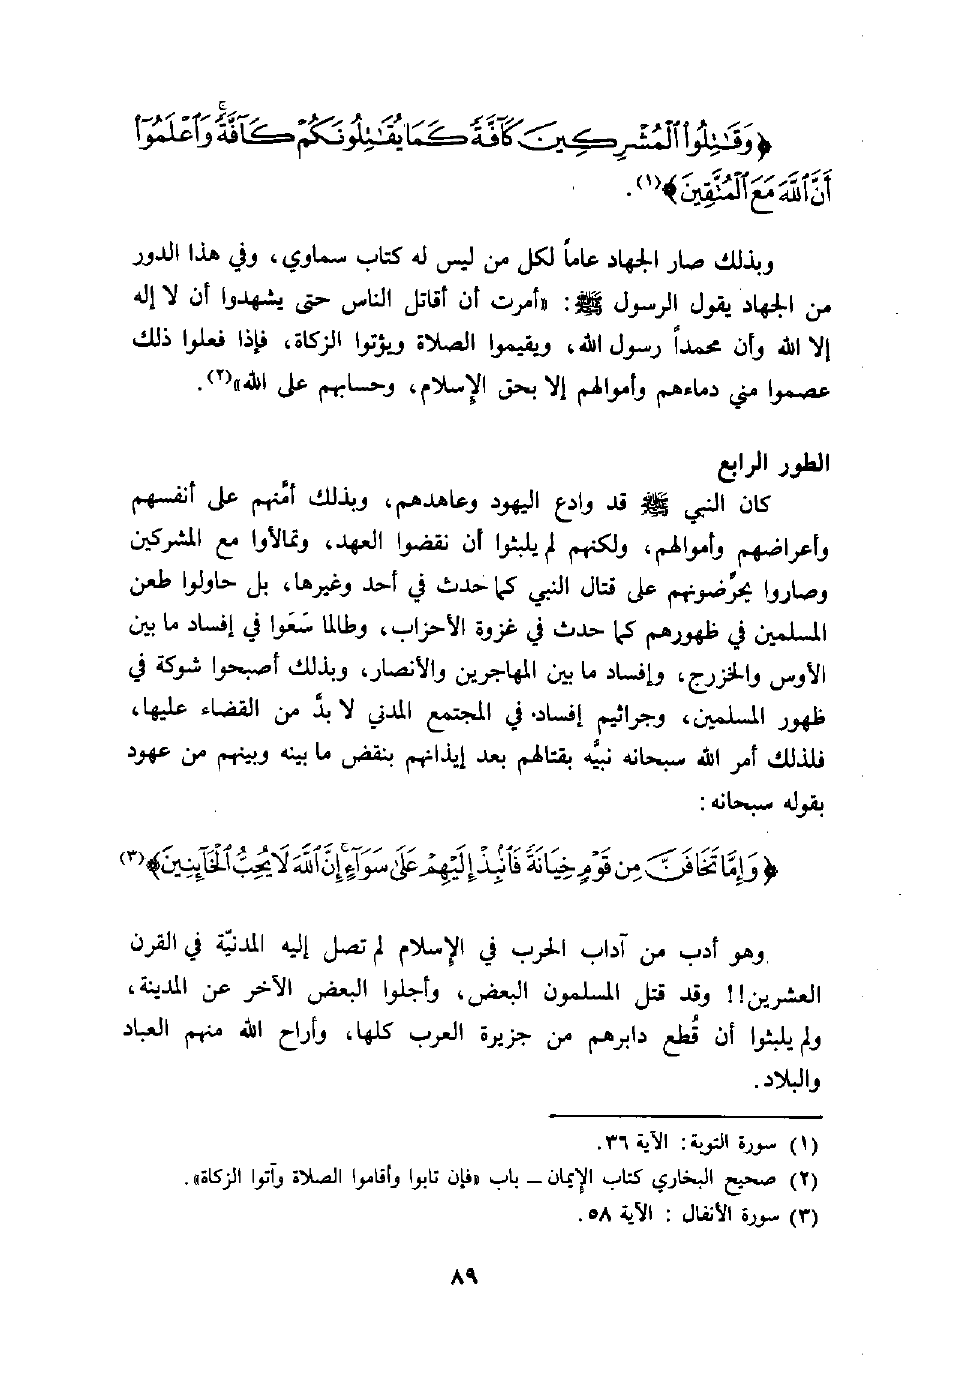 ﴿وَقَٰتِلُوا۟ ٱلْمُشْرِكِينَ كَآفَّةً كَمَا يُقَٰتِلُونَكُمْ كَآفَّةً ۚ وَٱعْلَمُوٓا۟
أَنَّ ٱللَّهَ مَعَ ٱلْمُتَّقِينَ﴾(١).
وبذلك صار الجهاد عاماً لكل من ليس له كتاب سماوي، وفي هذا الدور
من الجهاد يقول الرسول ﷺ: «أمرت أن أقاتل الناس حتى يشهدوا أن لا إله
إلا الله وأن محمداً رسول الله، ويقيموا الصلاة ويؤتوا الزكاة، فإذا فعلوا ذلك
عصموا مني دماءهم وأموالهم إلا بحق الإسلام، وحسابهم على الله»(٢).
الطور الرابع
كان النبي ﷺ قد وادع اليهود وعاهدهم، وبذلك أمَّنهم على أنفسهم
وأعراضهم وأموالهم، ولكنهم لم يلبثوا أن نقضوا العهد، وتمالأوا مع المشركين
وصاروا يحرِّضونهم على قتال النبي كما حدث في أحد وغيرها، بل حاولوا طعن
المسلمين في ظهورهم كما حدث في غزوة الأحزاب، وطالما سَعَوا في إفساد ما بين
الأوس والخزرج، وإفساد ما بين المهاجرين والأنصار، وبذلك أصبحوا شوكة في
ظهور المسلمين، وجراثيم إفساد في المجتمع المدني لا بدَّ من القضاء عليها،
فلذلك أمر الله سبحانه نبيَّه بقتالهم بعد إيذانهم بنقض ما بينه وبينهم من عهود
بقوله سبحانه:
﴿وَإِمَّا تَخَافَنَّ مِن قَوْمٍ خِيَانَةً فَٱنۢبِذْ إِلَيْهِمْ عَلَىٰ سَوَآءٍ ۚ إِنَّ ٱللَّهَ لَا يُحِبُّ ٱلْخَآئِنِينَ﴾(٣)
وهو أدب من آداب الحرب في الإسلام لم تصل إليه المدنيّة في القرن
العشرين!! وقد قتل المسلمون البعض، وأجلوا البعض الآخر عن المدينة،
ولم يلبثوا أن قُطع دابرهم من جزيرة العرب كلها، وأراح الله منهم العباد
والبلاد.
(١) سورة التوبة: الآية ٣٦.
(٢) صحيح البخاري كتاب الإيمان ــ باب «فإن تابوا وأقاموا الصلاة وآتوا الزكاة».
(٣) سورة الأنفال : الآية ٥٨.
٨٩